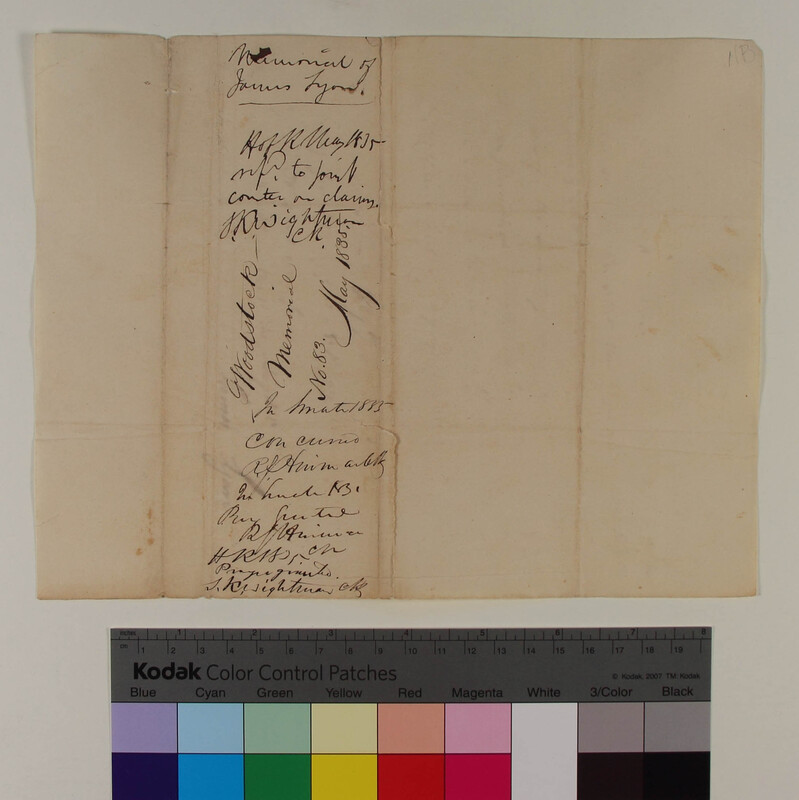 Memorial of
James Lyon.
H of R May 1835
refd. to joint
comtee on claims.
S. K. Wightman
Ck.
Woodstock
Memorial
No. 83.
May 1835.
In Senate 1835
Con curred
R R Hinman Clk
In Senate 183
Pray granted
R R Hinman
Ck
H R 1835
Pray granted.
S. K. Wightman Clk
11B
inches 1 2 3 4 5 6 7 8
cm 1 2 3 4 5 6 7 8 9 10 11 12 13 14 15 16 17 18 19
Kodak Color Control Patches
© Kodak, 2007 TM: Kodak
Blue Cyan Green Yellow Red Magenta White 3/Color Black